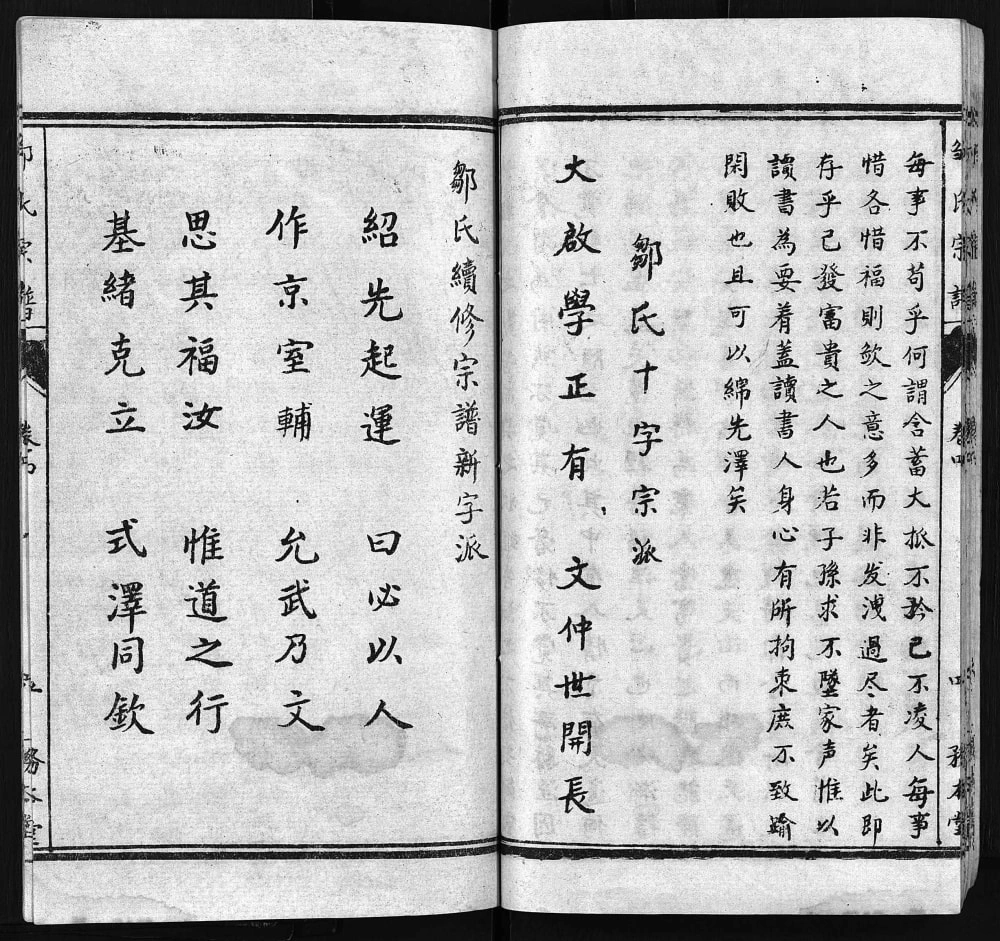 每事不苟乎何謂含蓄大抵不矜已不凌人每事
惜各惜福則歛之意多而非发洩過尽者矣此即
存乎己發富貴之人也若子孫求不墜家声惟以
讀書為要着盖讀書人身心有所拘束庶不致踰
閑敗也且可以綿先澤矣
鄒氏十字宗派
大啟學正有 文仲世開長
鄒氏續修宗譜新字派
紹先起運 曰必以人
作京室輔 允武乃文
思其福汝 惟道之行
基緒克立 式澤同欽
鄒氏宗譜 卷四 務本堂